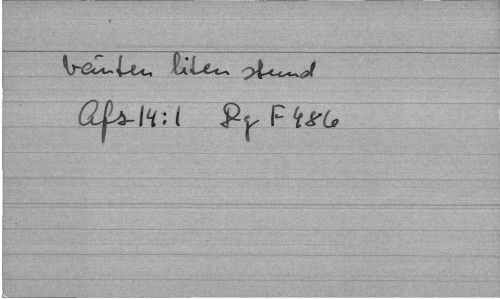 bänten liten stund
Afs 14:1 Rg F 486